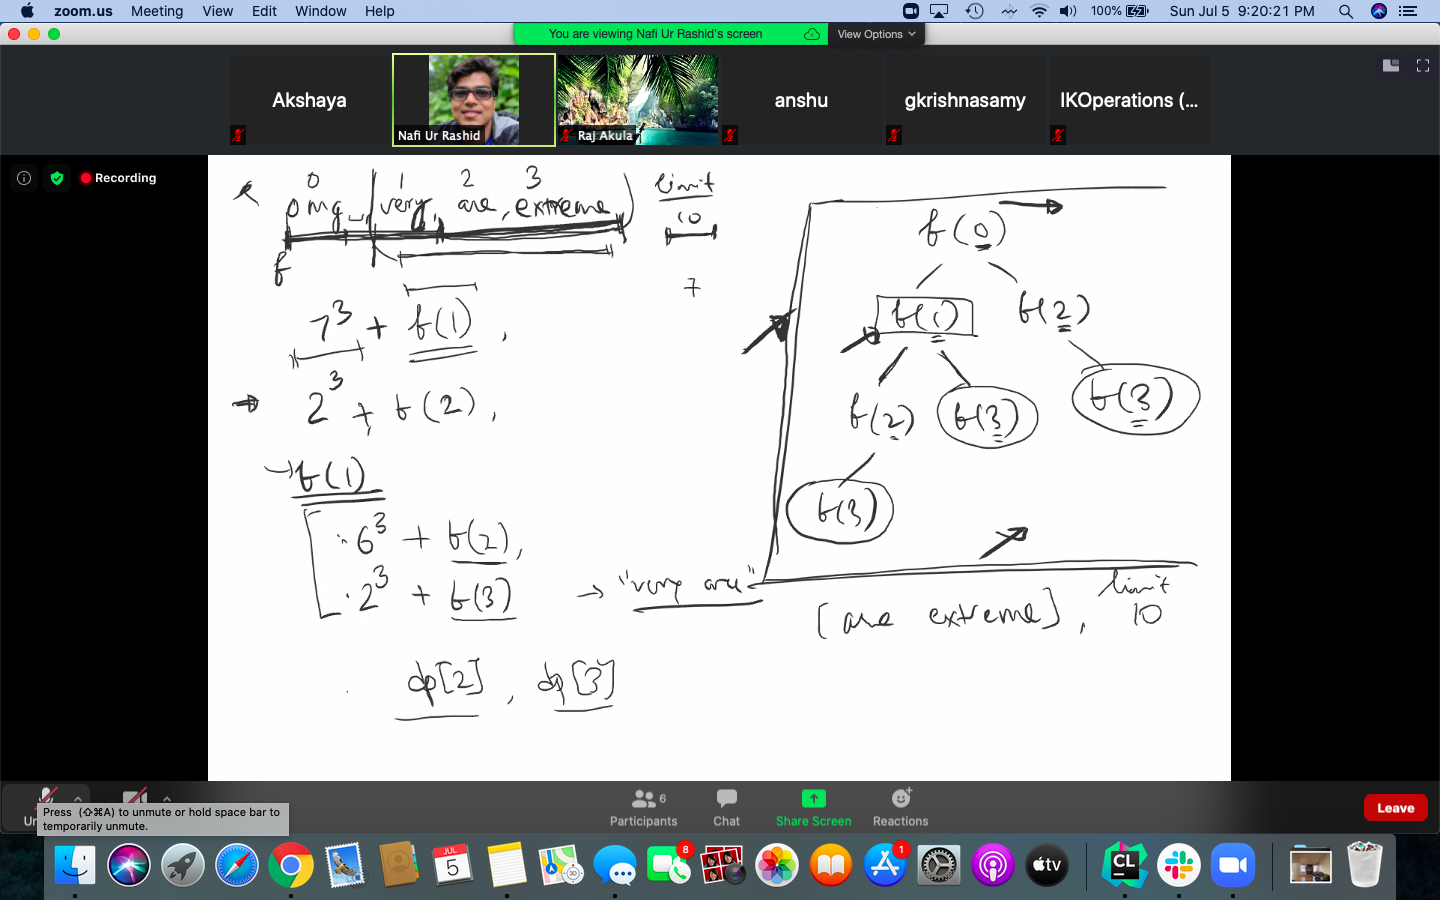 zoom.us Meeting View Edit Window Help 100% Sun Jul 5 9:20:21 PM
You are viewing Nafi Ur Rashid's screen View Options
Akshaya
Nafi Ur Rashid
Raj Akula
anshu
gkrishnasamy
IKOperations (...
Recording
0 1 2 3
omg, very, are, extreme
limit
10
f
7
7³ + f(1),
2³ + f(2),
f(1)
6³ + f(2),
2³ + f(3) → "very are"
dp[2], dp[3]
f(0)
f(1) f(2)
f(2) f(3) f(3)
f(3)
[are extreme], limit
10
Press (⇧⌘A) to unmute or hold space bar to
temporarily unmute.
6
Participants Chat Share Screen Reactions
Leave
JUL
5
8
1
tv
CL